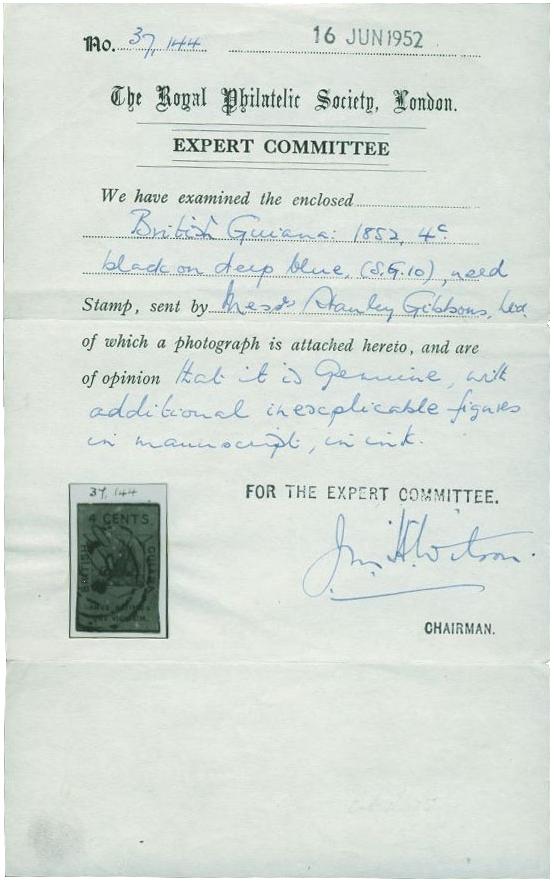 No. 37,144 16 JUN 1952
The Royal Philatelic Society, London.
EXPERT COMMITTEE
We have examined the enclosed
British Guiana: 1852, 4c
black on deep blue, (S.G.10), used
Stamp, sent by Messrs Stanley Gibbons, Ltd
of which a photograph is attached hereto, and are
of opinion that it is Genuine, with
additional inexplicable figures
in manuscript, in ink.
37,144
4 CENTS
BRITISH
GUIANA
FOR THE EXPERT COMMITTEE.
Jn. H. Wilson.
CHAIRMAN.